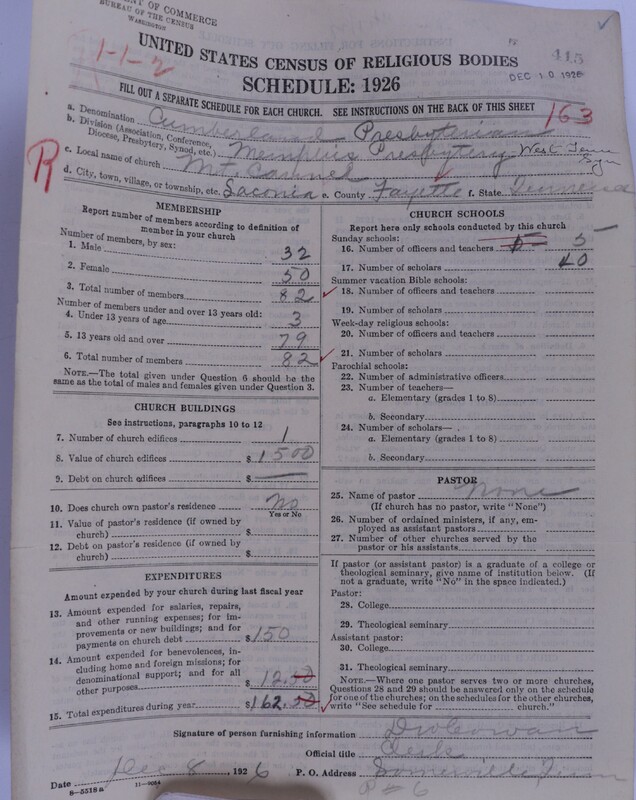 NT OF COMMERCE
BUREAU OF THE CENSUS
WASHINGTON
1-1-2
415
DEC 10 1926
UNITED STATES CENSUS OF RELIGIOUS BODIES
SCHEDULE: 1926
FILL OUT A SEPARATE SCHEDULE FOR EACH CHURCH. SEE INSTRUCTIONS ON THE BACK OF THIS SHEET
163
a. Denomination Cumberland Presbyterian
b. Division (Association, Conference, Diocese, Presbytery, Synod, etc.) Memphis Presbytery West Tenn Syn
R
c. Local name of church Mt
d. City, town, village, or township, etc. Laconia e. County Fayette f. State Tennessee
MEMBERSHIP
Report number of members according to definition of
member in your church
Number of members, by sex:
1. Male 32
2. Female 50
3. Total number of members 82
Number of members under and over 13 years old:
4. Under 13 years of age 3
5. 13 years old and over 79
6. Total number of members 82
NOTE.—The total given under Question 6 should be
same as the total of males and females given under Question 3.
CHURCH BUILDINGS
See instructions, paragraphs 10 to 12
7. Number of church edifices 1
8. Value of church edifices $ 1500
9. Debt on church edifices $ —
10. Does church own pastor's residence No
Yes or No
11. Value of pastor's residence (if owned by
church) $
12. Debt on pastor's residence (if owned by
church) $
EXPENDITURES
Amount expended by your church during last fiscal year
13. Amount expended for salaries, repairs,
and other running expenses; for im-
provements or new buildings; and for
payments on church debt $ 150
14. Amount expended for benevolences, in-
cluding home and foreign missions; for
denominational support; and for all
other purposes $ 12.50
15. Total expenditures during year $ 162.50
CHURCH SCHOOLS
Report here only schools conducted by this church
Sunday schools:
16. Number of officers and teachers 5
17. Number of scholars 40
Summer vacation Bible schools:
18. Number of officers and teachers
19. Number of scholars
Week-day religious schools:
20. Number of officers and teachers
21. Number of scholars
Parochial schools:
22. Number of administrative officers
23. Number of teachers—
a. Elementary (grades 1 to 8)
b. Secondary
24. Number of scholars—
a. Elementary (grades 1 to 8)
b. Secondary
PASTOR
25. Name of pastor None
(If church has no pastor, write "None")
26. Number of ordained ministers, if any, em-
ployed as assistant pastors
27. Number of other churches served by the
pastor or his assistants
If pastor (or assistant pastor) is a graduate of a college or
theological seminary, give name of institution below. (If
not a graduate, write "No" in the space indicated.)
Pastor:
28. College
29. Theological seminary
Assistant pastor:
30. College
31. Theological seminary
NOTE.—Where one pastor serves two or more churches,
Questions 28 and 29 should be answered only on the schedule
for one of the churches; on the schedules for the other churches,
write "See schedule for church."
Signature of person furnishing information
Official title Clerk
Date Dec 8, 1926 P. O. Address Somerville Tenn
8-5518a 11-9084 R#6